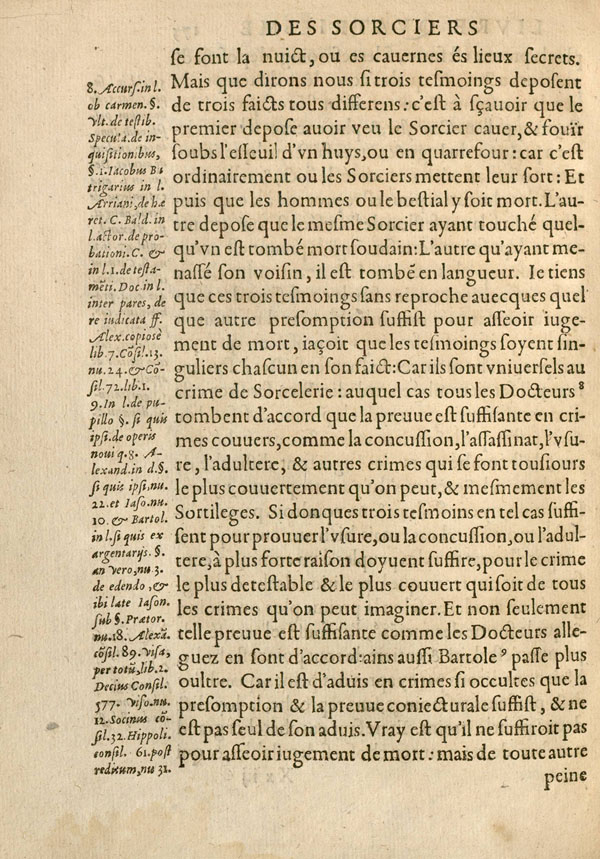 DES SORCIERS
se font la nuict, ou es cauernes és lieux secrets.
Mais que dirons nous si trois tesmoings deposent
de trois faicts tous differens: c'est à sçauoir que le
premier depose auoir veu le Sorcier cauer, & fouïr
soubs l'esseuil d'vn huys, ou en quarrefour: car c'est
ordinairement ou les Sorciers mettent leur sort: Et
puis que les hommes ou le bestial y soit mort. L'au-
tre depose que le mesme Sorcier ayant touché quel-
qu'vn est tombé mort soudain: L'autre qu'ayant me-
nassé son voisin, il est tombé en langueur. Ie tiens
que ces trois tesmoings sans reproche auecques quel
que autre presomption suffist pour asseoir iuge-
ment de mort, iaçoit que les tesmoings soyent sin-
guliers chascun en son faict: Car ils sont vniuersels au
crime de Sorcelerie: auquel cas tous les Docteurs 8
tombent d'accord que la preuue est suffisante en cri-
mes couuers, comme la concussion, l'assassinat, l'vsu-
re, l'adultere, & autres crimes qui se font tousiours
le plus couuertement qu'on peut, & mesmement les
Sortileges. Si donques trois tesmoins en tel cas suffi-
sent pour prouuer l'vsure, ou la concussion, ou l'adul-
tere, à plus forte raison doyuent suffire, pour le crime
le plus detestable & le plus couuert qui soit de tous
les crimes qu'on peut imaginer. Et non seulement
telle preuue est suffisante comme les Docteurs alle-
guez en sont d'accord: ains aussi Bartole 9 passe plus
oultre. Car il est d'aduis en crimes si occultes que la
presomption & la preuue coniecturale suffist, & ne
est pas seul de son aduis. Vray est qu'il ne suffiroit pas
pour asseoir iugement de mort: mais de toute autre
peine
8. Accurs. in l.
ob carmen. §.
vlt. de testib.
Specula. de in-
quisitionibus,
§. 1. Iacobus Bu
trigarius in l.
Arriani, de hæ
ret. C. Bald. in
l. actor. de pro-
bationi. C. &
in l. 1. de testa-
mēti. Doc. in l.
inter pares, de
re indicata ff.
Alex. copiosè
lib. 7. Cōsil. 13.
nu. 24. & Cō-
sil. 72. lib. 1.
9. In l. de pu-
pillo §. si quis
ipsi. de operis
noui q. 8. Al-
exand. in d. §.
si quis ipsi, nu.
22. et Iaso. nu.
10. & Bartol.
in l. si quis ex
argentarijs. §.
an vero, nu 3.
de edendo, &
ibi late Iason.
sub §. Prætor.
nu. 18. Alexā.
cōsil. 89. visa,
per totū, lib. 2.
Decius Consil.
577. viso. nu.
12. Socinus cō-
sil. 32. Hippoli.
consil. 61. post
reditum, nu 31.